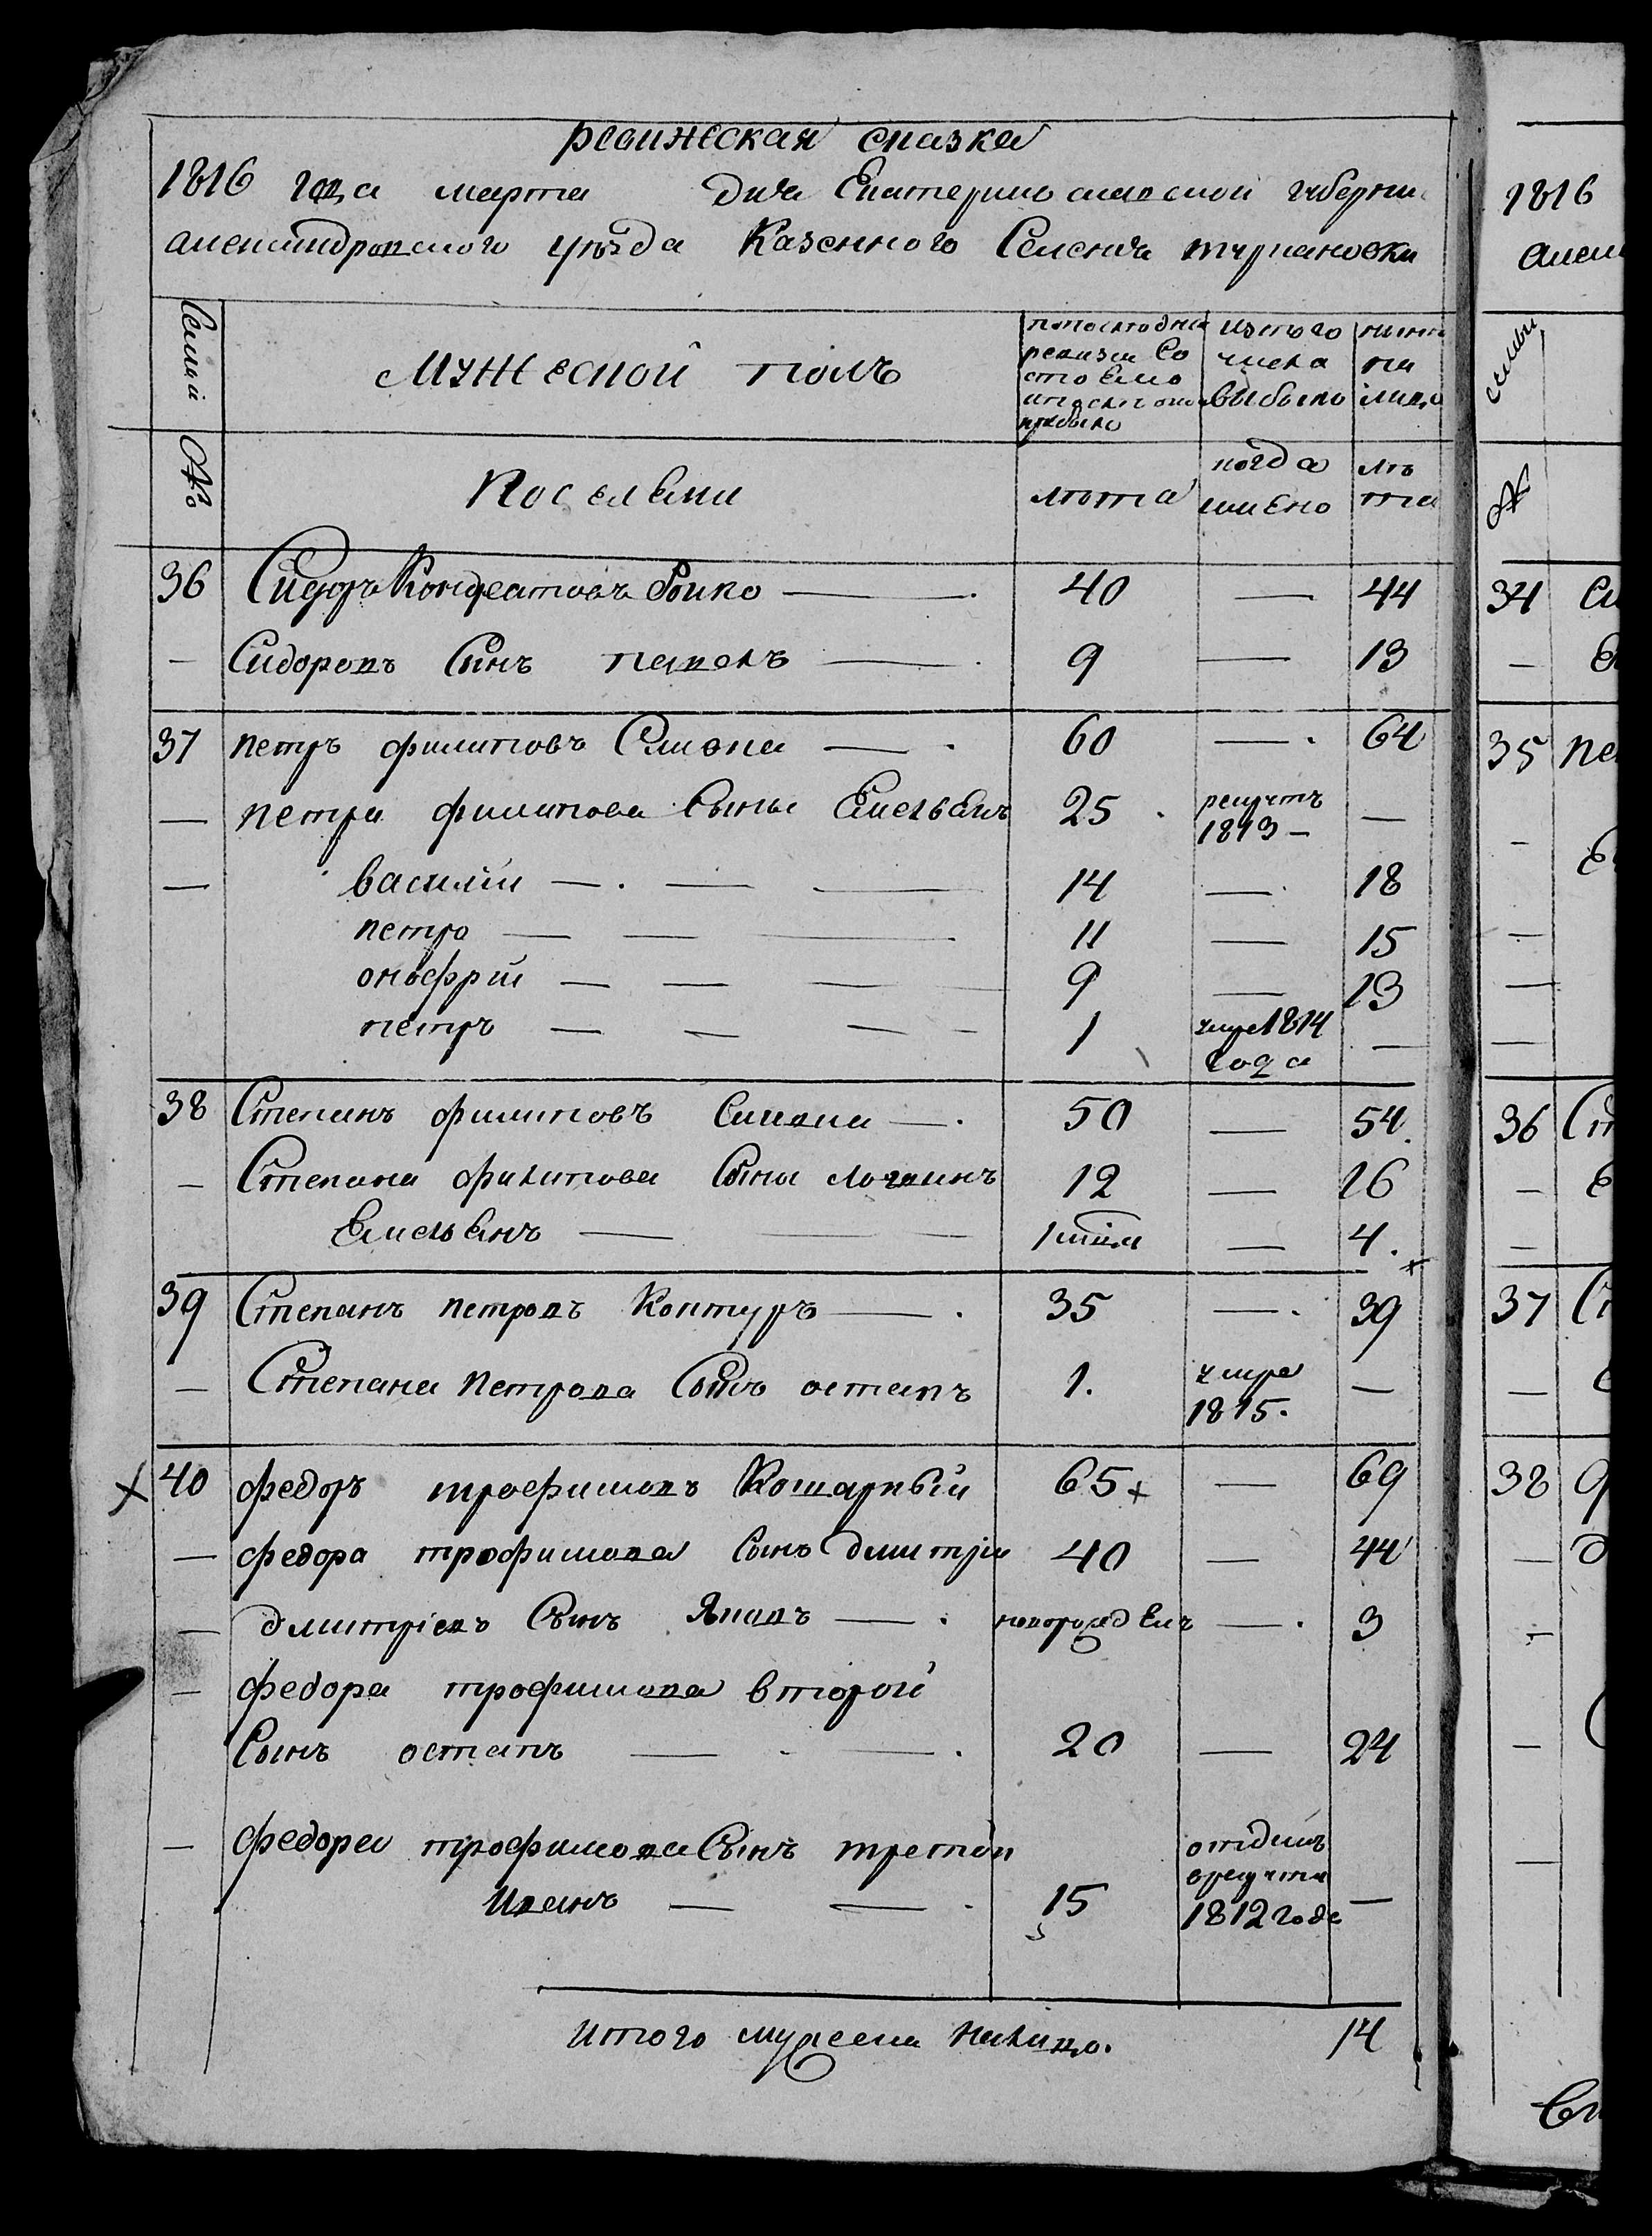 ревижская сказка
1816 года марта дня Екатеринославской губерни
александровского уѣзда Казенного Селения
Семьи
мужеской полъ
по последней ревизии Состояло и после оной прибыло
изъ того числа выбыло
ныне на лицо
№
Поселяни
лѣта
когда имено
лѣта
36 Сидоръ Кондратовъ — 40 — 44
— Сидоровъ Синъ павелъ — 9 — 13
37 петръ филиповъ — 60 — 64
— петра филипова Сыны Емельянъ 25 рекрутъ 1813 — —
— василій — 14 — 18
петро — 11 — 15
онофрій — 9 — 13
петръ — 1 умре 1814 года —
38 Степанъ филиповъ — 50 — 54.
— Степана филипова Сыны логвинъ 12 — 16
Емельянъ — 4.
39 Степанъ петровъ Контуръ — 35 — 39
— Степана петрова Сынъ остапъ 1. умре 1815. —
40 федоръ трофимовъ Кошарный 65 — 69
— федора трофимова Сынъ дмитри 40 — 44
— дмитріевъ Сынъ Яковъ — новорожден — 3
— федора трофимова второй
Сынъ остапъ — 20 — 24
— федора трофимова Сынъ третій
Иванъ — 15 отданъ в рекрути 1812 годе —
Итого мужеска налицо. 14
1816
алек
семьи
№
34
35 пе
36 Ст
37 Ст
38